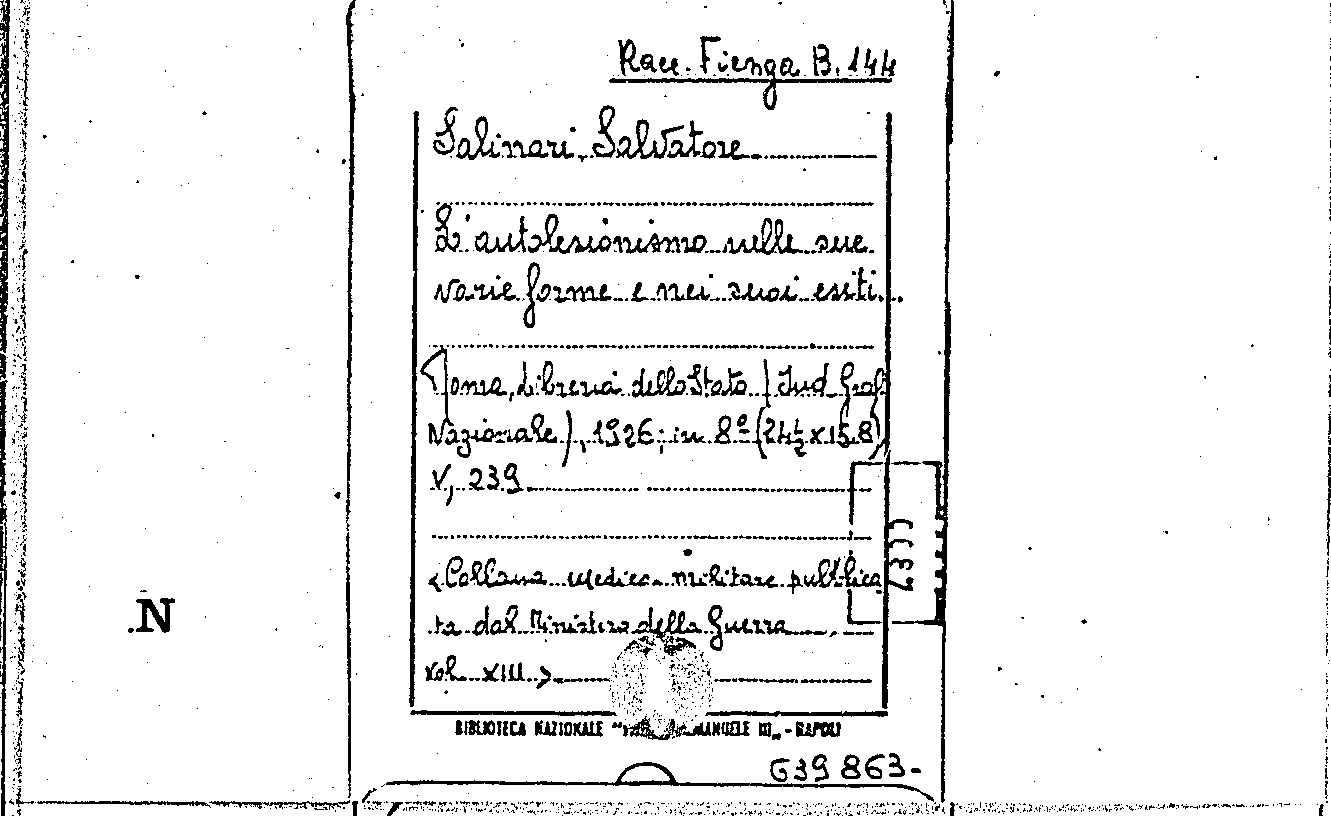 Racc. Fienga B. 144
Salinari Salvatore
L'autolesionismo nelle sue
varie forme e nei suoi esiti...
Roma, Libreria dello Stato (Ind. Graf.
Nazionale), 1926; in 8º (24½ x 15,8)
V, 239
«Collana medico-militare pubblica
ta dal Ministero della Guerra
vol. XIII.»
BIBLIOTECA NAZIONALE " EMANUELE III„ - NAPOLI
639 863-
N